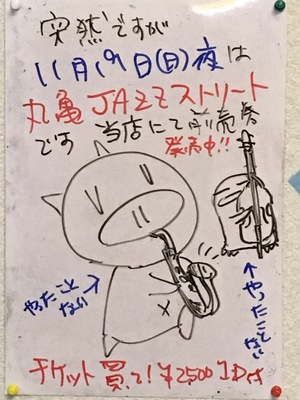 突然ですが
11月19日(日)夜は
丸亀JAZZストリート
です 当店にて前売券
発売中!!
やったこと
ない→
↑やったことない
チケット買って!¥2500 1Drき